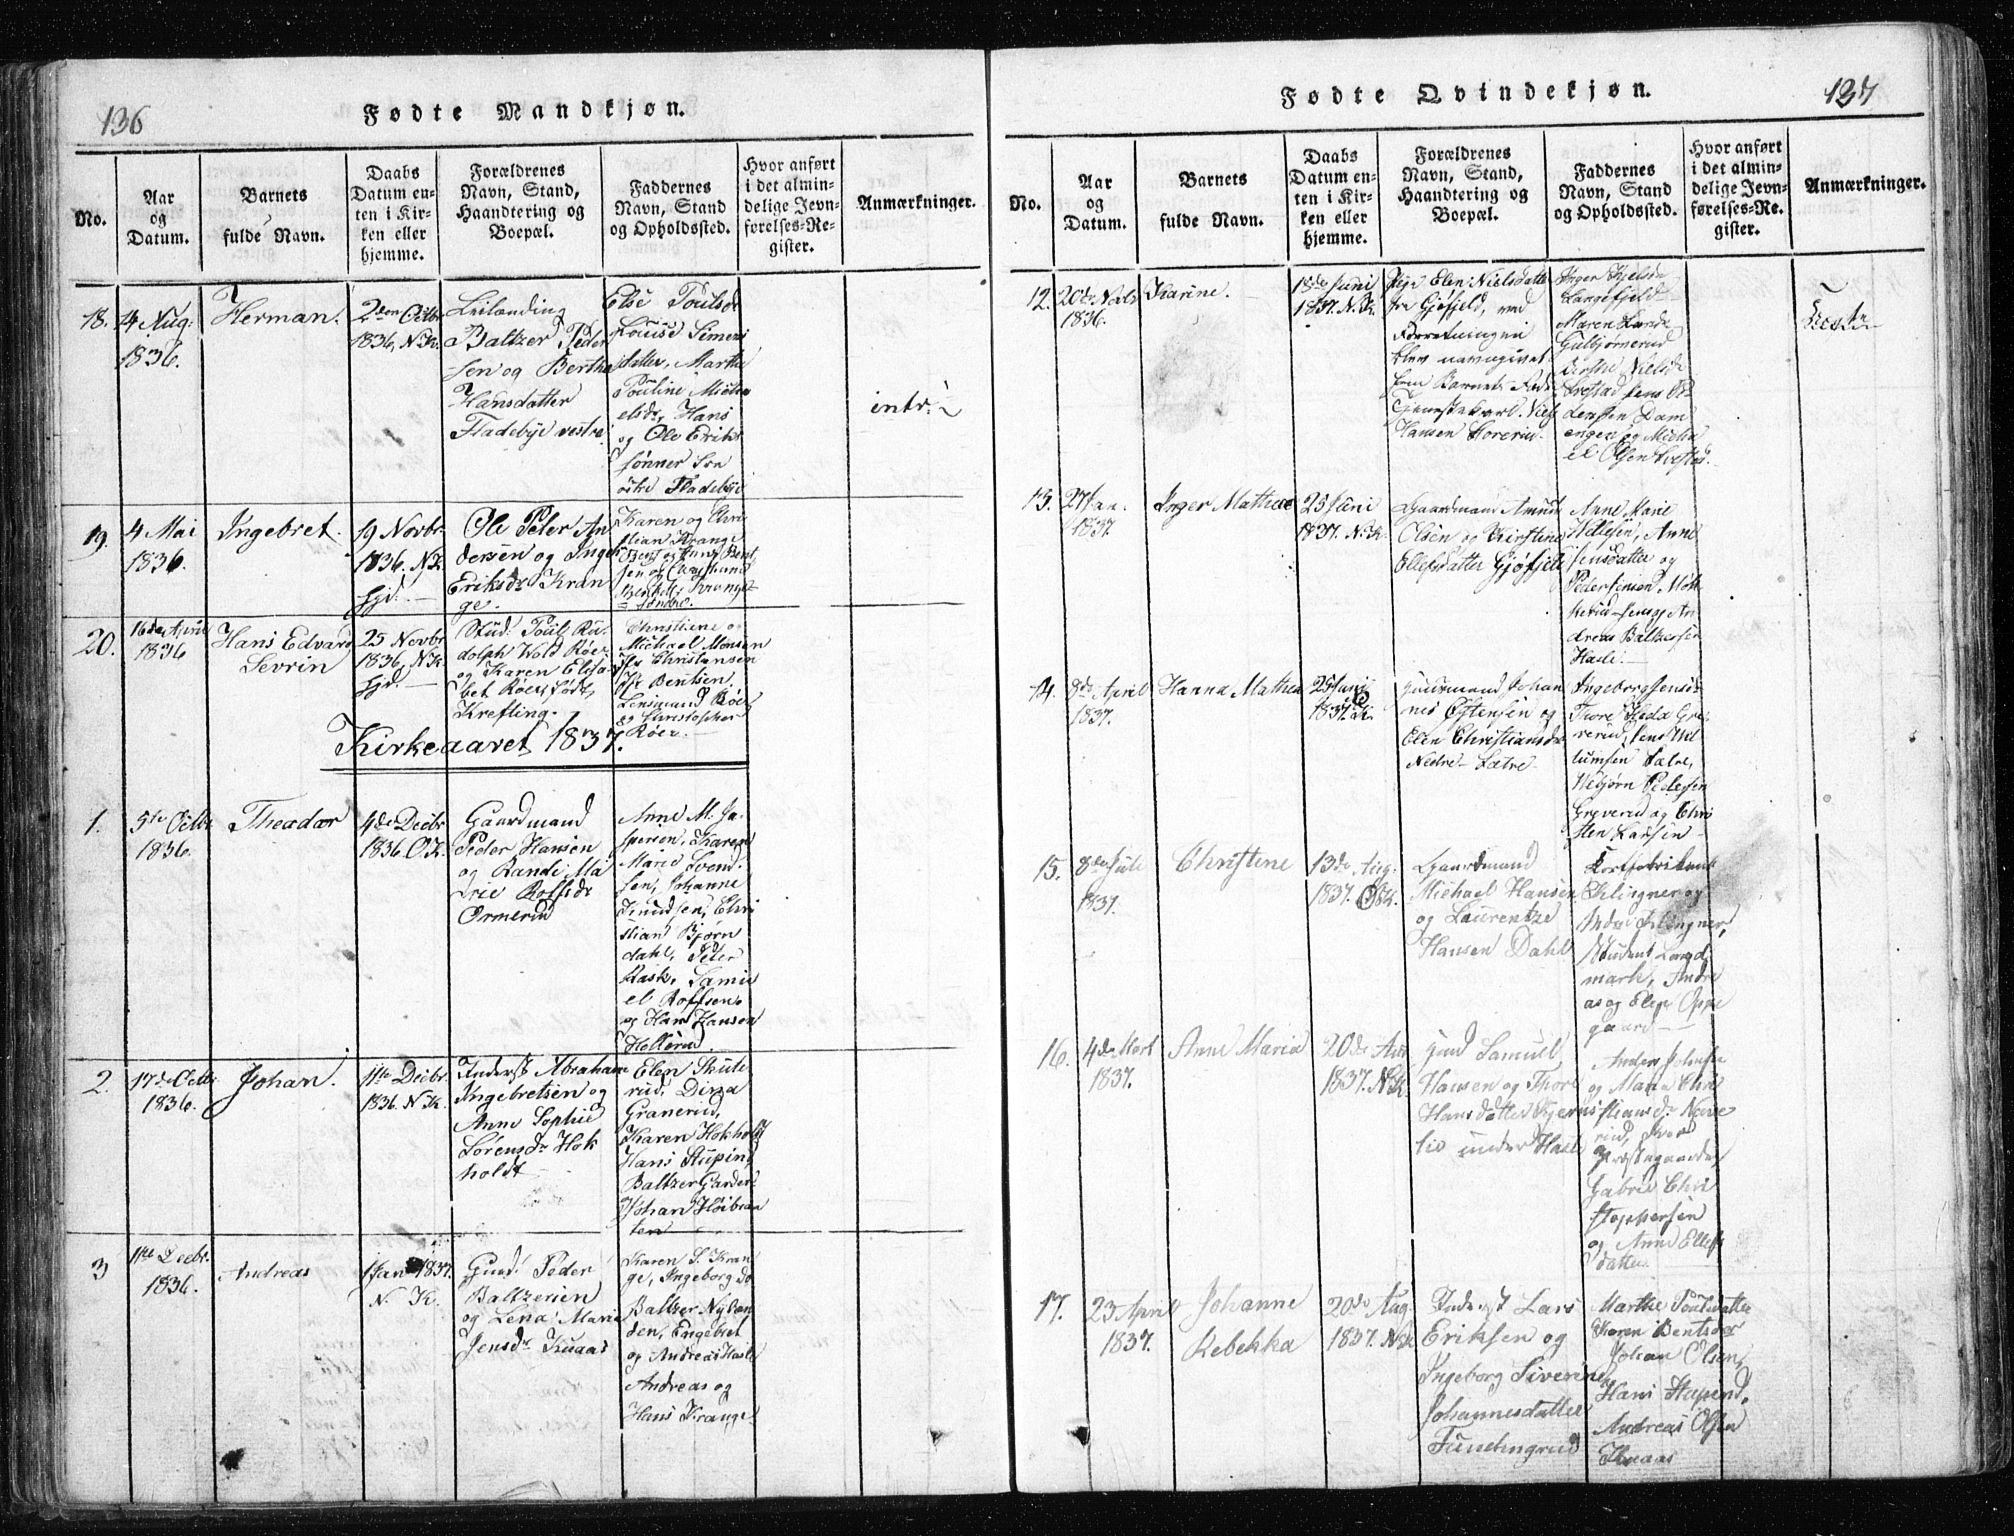 136
Fødte Mandkjøn.
No.
Aar
og
Datum.
Barnets
fulde Navn.
Daabs
Datum en-
ten i Kir-
ken eller
hjemme.
Forældrenes
Navn, Stand,
Haandtering og
Boepæl.
Faddernes
Navn, Stand
og Opholdssted.
Hvor anført
i det almin-
delige Jevn-
førelses-Re-
gister.
Anmærkninger.
18.
4 Aug:
1836.
Herman.
2den Octbr
1836, N.K.
Leilænding
Baltzer Peder
sen og Berthe
Hansdatter
Fladebye vestre
Else Poulsdr
Louise Simens
datter, Marthe
Pouline Micha
elsdr, Hans
og Ole Eriks
sønner
Fladebye
intr:
19.
4 Mai
1836.
Ingebret.
19 Novbr
1836. N.K.
Hjd.
Ole Peter An
dersen og Inger
Eriksdr Kran
ge.
Karen og Chri
stian Krange
sen og
20.
16de April
1836
Hans Edvard
Sevrin
25 Novbr
1836, N.K.
Hjd.
Stud: Poul Ru
dolph Wold Røer
og Karen Elisa
bet Røer, født
Krefting.
Christiene og
Michael Monsen
Christensen
Berntsen
Lensmand Røer
og Christopher
Røer.
Kirkeaaret 1837.
1.
5te Octbr
1836.
Theodor
4de Decbr
1836. O.K.
Gaardmand
Peder Hansen
og Randi Ma
rie Rolfsdr
Ormerud
Anne M. Ja-
spersen, Karen
Marie Svend-
sen, Johanne
Knudsen, Chri
stian Bjørn
dahl, Peter
Rask, Samu
el Roffsen
og Hans Hansen
Hellerud
2.
17de Octbr
1836.
Johan.
11te Decbr.
1836. N.K.
Inderst Abraham
Ingebretsen og
Anne Sophie
Sørensdr Hok
holdt
Elen Skule
rud, Dirza
Granerud,
Karen Hokholt
Hans Stupind
Baltzer Garder
Johan Høibraa
ten
3
11te Decbr.
1836.
Andreas
1 Jan 1837.
N. K.
Gmd: Peder
Baltzersen
og Lena Marie
Jensdr Knaas
Karen S. Kran
ge, Ingeborg do
Baltzer Nylæn
den, Engebret
og Andreas Hasle
Andreas og
Hans Krange
137
Fødte Qvindekjøn.
No.
Aar
og
Datum.
Barnets
fulde Navn.
Daabs
Datum en-
ten i Kir-
ken eller
hjemme.
Forældrenes
Navn, Stand,
Haandtering og
Boepæl.
Faddernes
Navn, Stand
og Opholdssted.
Hvor anført
i det almin-
delige Jevn-
førelses-Re-
gister.
Anmærkninger.
12.
20de
1836.
Karine.
18de Juni
1837. N.K.
Pige Elen Nielsdatter
fra Gjøfjeld, ved
Forretningen
blev navngivet
som Barnets Fader
Tjenestekarl Niels
Hansen
Inger
Langefjeld
Maren
Gulbjørnerud
Nielsdr
Jens Pe
dersen Dam
engen og Micha
el Olsen
13.
27 Jan.
1837.
Inger Mathea
25 Juni
1837. N.K.
Gaardmand Amund
Olsen og Kirstine
Ellefsdatter Gjøfjeld
Anne Marie
Anne
Jensdatter og
Peder Jensen
An
dreas Baltzersen
Hasle.
14.
8de April
1837.
Hanna Mathea
25 Juni
1837. K.
Gaardmand Johan
nes Østensen og
Elen Christiansdr
Nedre Sætre
Ingeborg Jensdr
Thore Gre-
verud, Jens Wil
lumsen Sætre,
Webjørn Pedersen
Greverud og Chri
sten Larsen
15.
8de Juli
1837.
Christine
13de Aug.
1837. O.K.
Gaardmand
Michael Hansen
og Laurentze
Hansen Dahl
Klingner og
Klingner,
Student Langd
mark, Andre
as og Elen Oppe
gaard
16.
4de Mart
1837.
Anne Maria
20de Aug
1837. N.K.
Gmd Samuel
Hansen og Thore
Hansdatter Kjernes
lie under Hasle
Anders Johnsen
og Maria Chri
stiansdr Næve
rud,
Præstegaarden
Gabriel Chri
stophersen
og Anne Ellefs
datter
17.
23 April
1837.
Johanne
Rebekka
20de Aug.
1837. N.K
Inderst Lars
Eriksen og
Ingeborg Siverine
Johannesdatter
Funtingrud
Marthe Poulsdatter
Karen Berntsdr
Johan Olsen,
Hans Stupend,
Andreas Olsen
Knaas